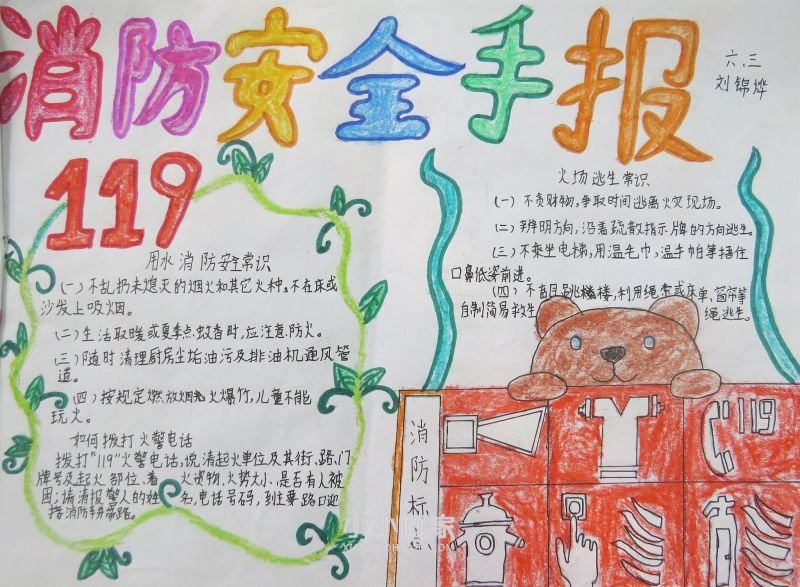 消防安全手报
六、三
刘锦烨
119
用水消防安全常识
(一)不乱扔未熄灭的烟火和其它火种。不在床或
沙发上吸烟。
(二)生活取暖或夏季点蚊香时,应注意防火。
(三)随时清理厨房尘垢油污及排油机通风管
道。
(四)按规定燃放烟火爆竹,儿童不能
玩火。
如何拨打火警电话
拨打"119"火警电话,说清起火单位及其街、路、门
牌号及起火部位、着火资物、火势大小、是否有人被
困;请清报警人的姓名,电话号码,到主要路口迎
接消防车带路。
火场逃生常识
(一)不贪财物,争取时间逃离火灾现场。
(二)辨明方向,沿着疏散指示牌的方向逃生。
(三)不乘坐电梯,用温毛巾,温手帕等捂住
口鼻低姿前进。
(四)不盲目跳楼,利用绳索或床单、窗帘等
自制简易救生绳逃生。
消防标志
119